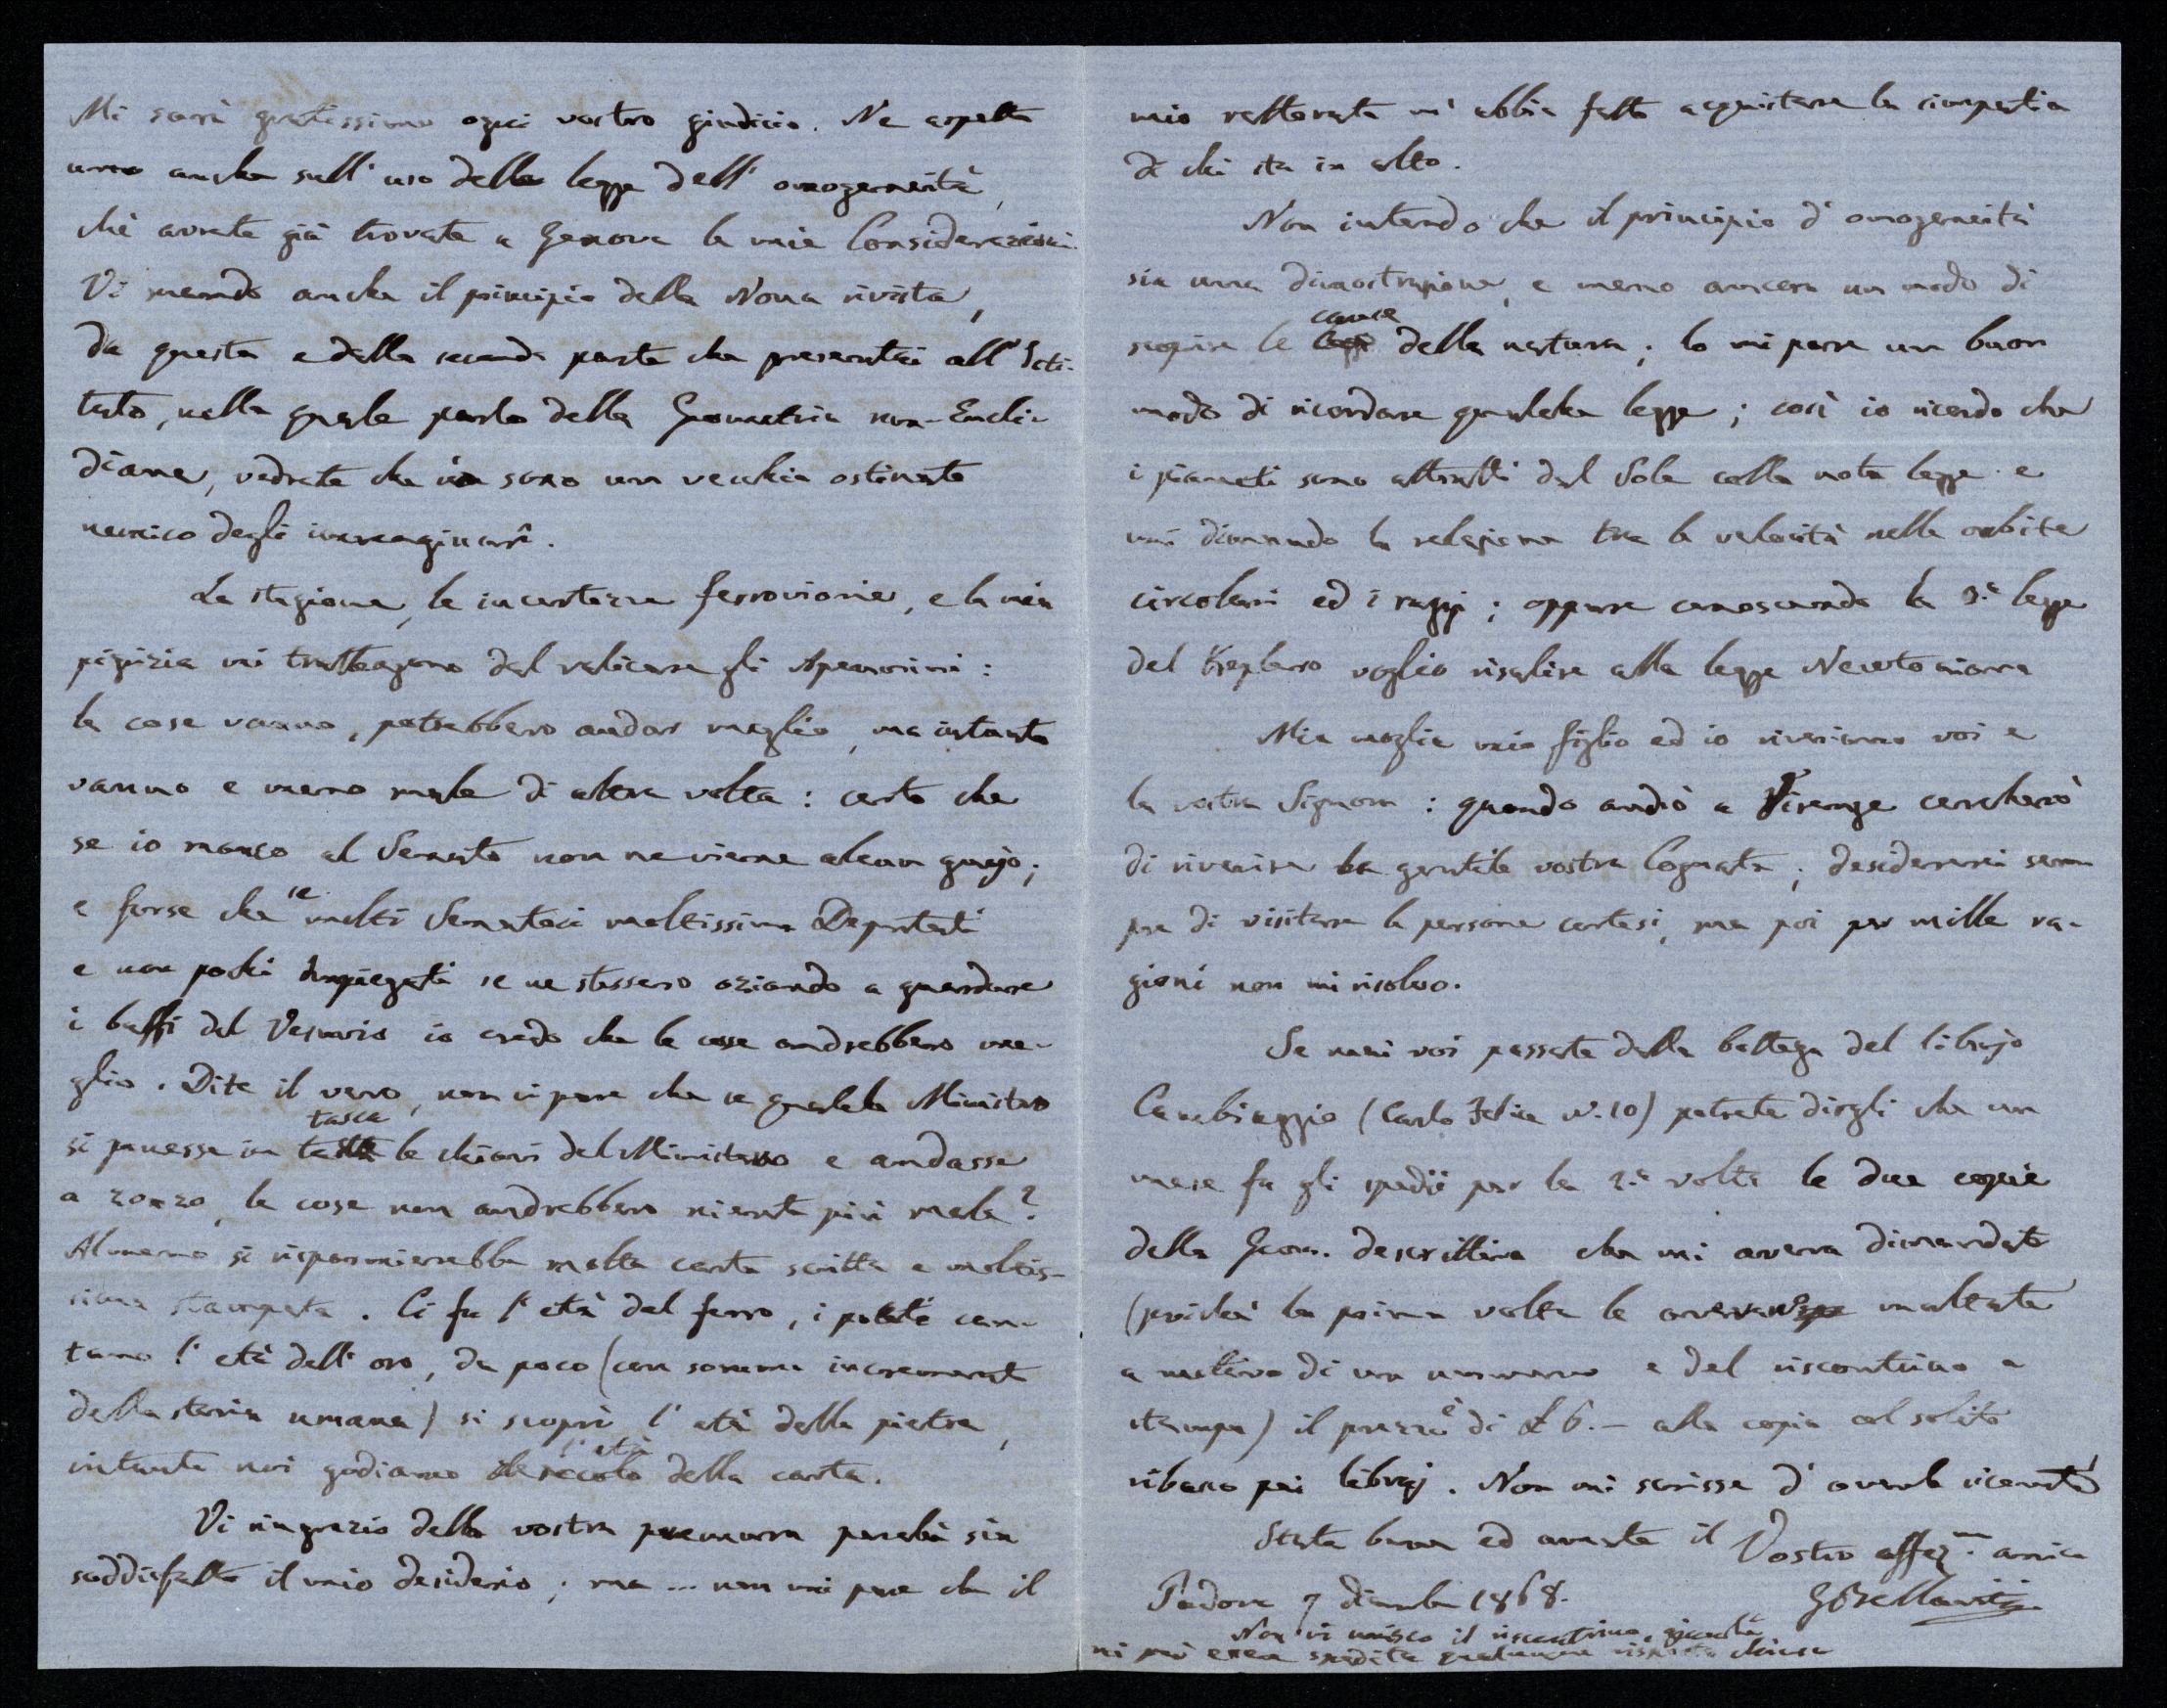 Mi sarà gratissimo ogni vostro giudizio. Ne aspetto
uno anche sull' uso della legge dell' omogeneità,
chè avrete già trovate a Genova le mie Considerazioni.
Vi mando anche il principio della Nona rivista,
da questa e dalla seconda parte che presentai all' Isti-
tuto, nella quale parlo della Geometria non-Eucli-
diana, vedrete che io sono un vecchio ostinato
nemico degli immaginarî.
La stagione, le incertezze ferroviarie, e la mia
pigrizia mi trattengono dal valicare gli Apennini:
le cose vanno, potrebbero andar meglio, ma intanto
vanno e meno male di altra volta: certo che
se io manco al Senato non ne viene alcun guajo;
e forse che se molti Senatori moltissimi Deputati
e non pochi impiegati se ne stessero oziando a guardare
i baffi del Vesuvio io credo che le cose andrebbero me-
glio. Dite il vero, non vi pare che se qualche Ministro
si ponesse in tasca le chiavi del Ministero e andasse
a zonzo, le cose non andrebbero niente più male?
Almeno si risparmierebbe molta carta scritta e moltis-
sima stampata. Ci fu l' età del ferro, i poeti can-
tano l' età dell' oro, da poco (con sommo incremento
della storia umana) si scoprì l' età della pietra,
intanto noi godiamo l' età della carta.
Vi ringrazio della vostra premura perchè sia
soddisfatto il mio desiderio; ma ... non mi pare che il
mio rettorato m' abbia fatto acquistare la simpatia
di chi sta in alto.
Non intendo che il principio d' omogeneità
sia una dimostrazione, e meno ancora un modo di
scoprire le cause della natura; lo mi pare un buon
modo di ricordare qualche legge; così io ricordo che
i pianeti sono attratti dal Sole colla nota legge e
mi dimando la relazione tra le velocità nelle orbite
circolari ed i raggi; oppure conoscendo la 3.a legge
del Keplero voglio risalire alla legge Newtoniana
Mia moglie mio figlio ed io riveriamo voi e
la vostra Signora: quando andrò a Firenze cercherò
di riverire la gentile vostra Cognata; desidererei sem-
pre di visitare le persone cortesi, ma poi per mille ra-
gioni non mi risolvo.
Se mai voi passate dalla bottega del librajo
Cambiaggio (Carlo Felice N. 10) potrete dirgli che un
mese fa gli spedii per la 2.a volta le due copie
della Geom. descrittiva che mi aveva dimandato
(poichè la prima volta le avevano multate
a motivo di un numero e del riscontrino a
stampa) il prezzo è di £ 6.- alla copia col solito
ribasso pei libraj. Non mi scrisse d' averle ricevute
State bene ed amate il Vostro affez.mo amico
Padova 7 dicembre 1868. GBellavitis
Non vi unisco il riscontrino, giacchè
mi può esser spedita qualunque risposta chiusa